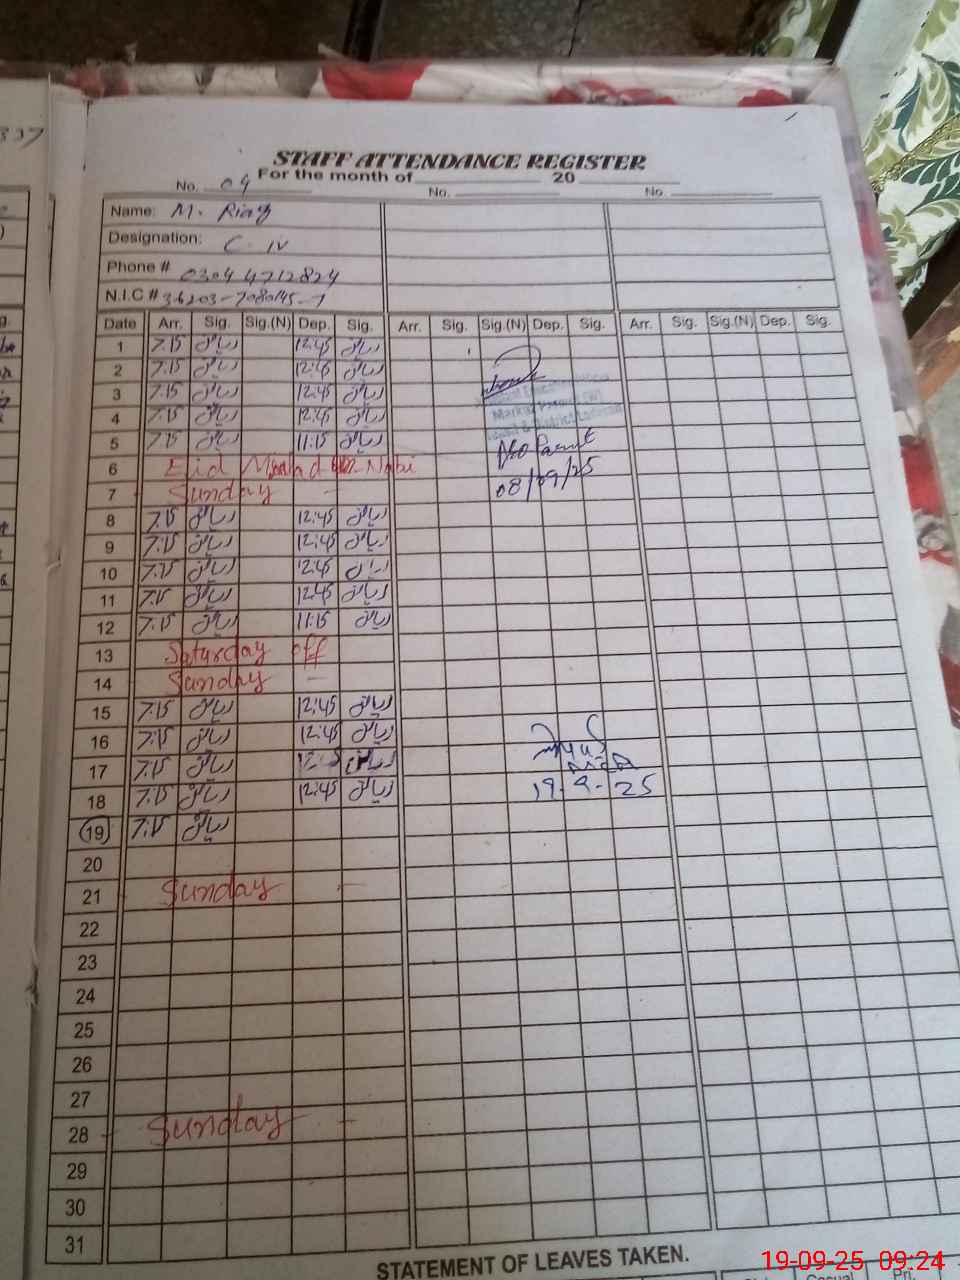 STAFF ATTENDANCE REGISTER
For the month of 20
No. 04 No. No.
Name: M. Riaz
Designation: C-IV
Phone # 0304 4712824
N.I.C # 36203-7080145-1
Date Arr. Sig. Sig.(N) Dep. Sig. Arr. Sig. Sig.(N) Dep. Sig. Arr. Sig. Sig.(N) Dep. Sig.
1 7.15 ریاض 12:45 ریاض
2 7.15 ریاض 12:45 ریاض
3 7.15 ریاض 12:45 ریاض
4 7.15 ریاض 12:45 ریاض
5 7.15 ریاض 11:15 ریاض
6 Eid Milad un Nabi
7 Sunday -
08/09/25
8 7.15 ریاض 12:45 ریاض
9 7:15 ریاض 12:45 ریاض
10 7.15 ریاض 12:45 ریاض
11 7.15 ریاض 12:45 ریاض
12 7.15 ریاض 11:15 ریاض
13 Saturday off
14 Sunday -
15 7.15 ریاض 12:45 ریاض
16 7:15 ریاض 12:45 ریاض
17 7.15 ریاض ریاض
18 7:15 ریاض 12:45 ریاض
19-9-25
19 7:15 ریاض
20
21 Sunday -
22
23
24
25
26
27
28 Sunday -
29
30
31
STATEMENT OF LEAVES TAKEN.
Casual
19-09-25 09:24